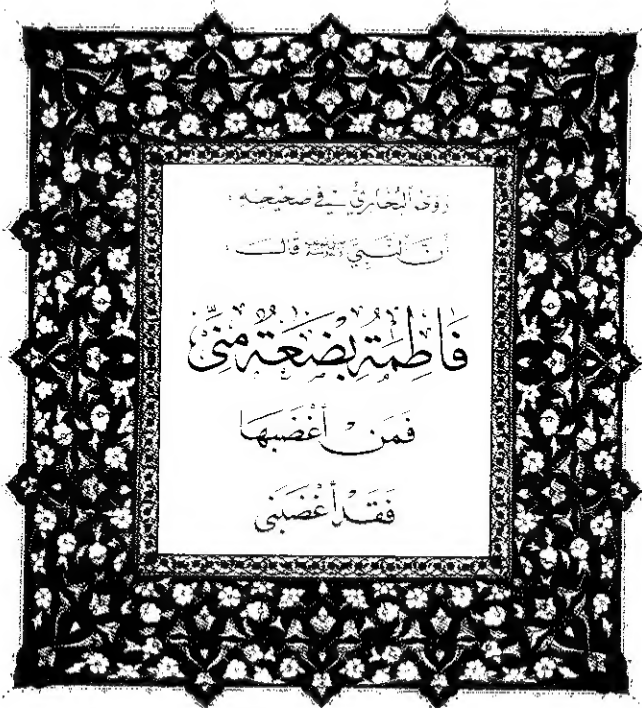 روى البخاري في صحيحه :
أن النبي ﷺ قال :
فَاطِمَةُ بِضْعَةٌ مِنِّي
فَمَنْ أَغْضَبَهَا
فَقَدْ أَغْضَبَنِي